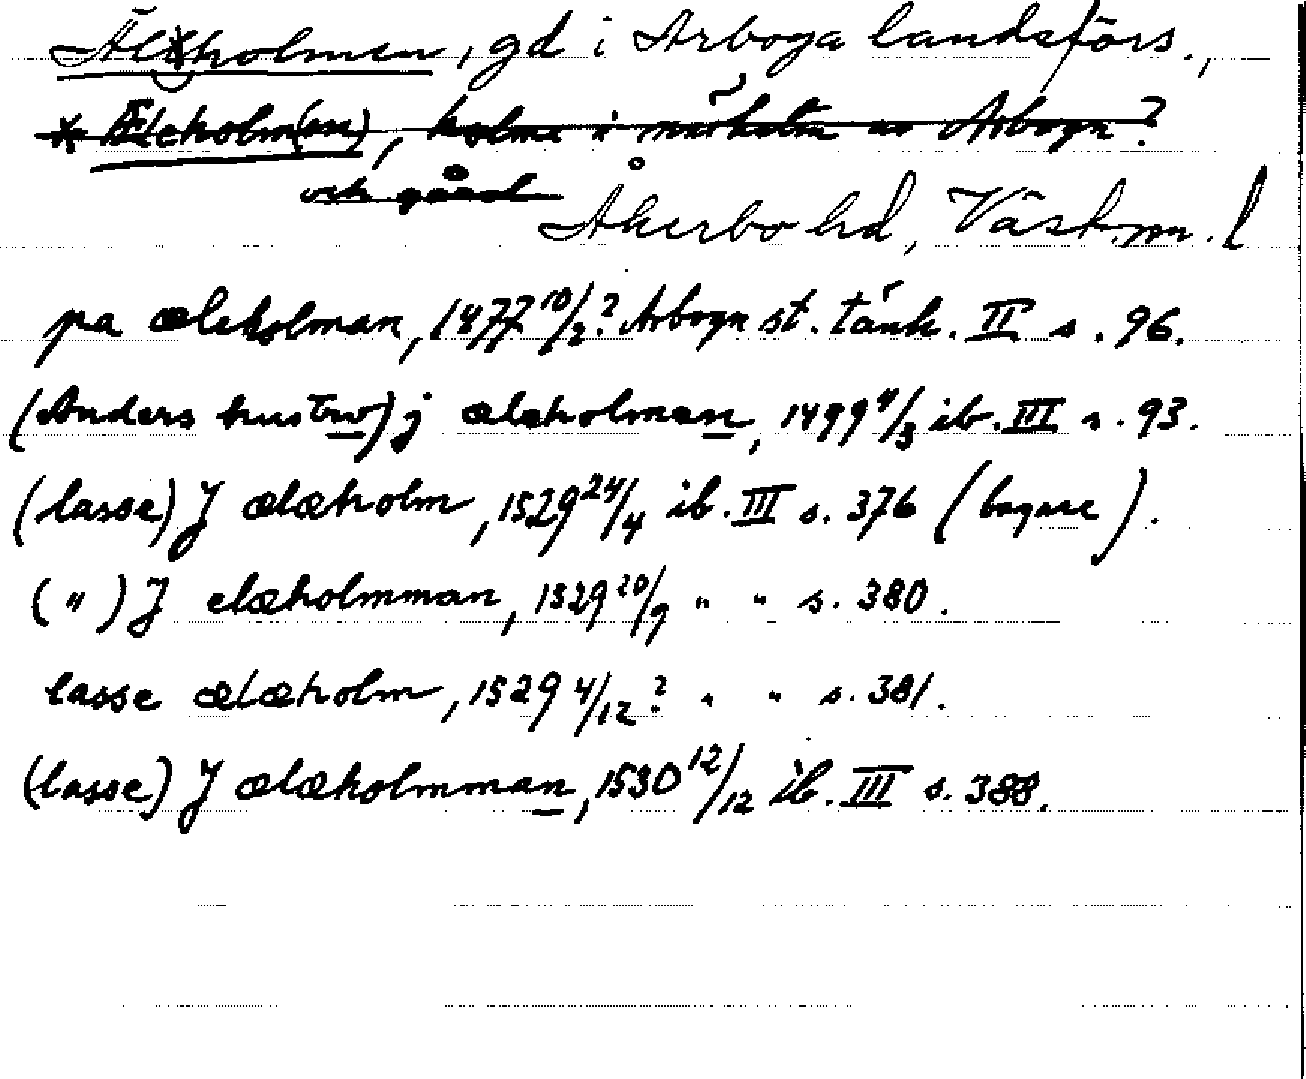 Älholmen, gd i Arboga landsförs.,
* Äleholm(en), holme i närheten av Arboga?
och gård
Åkerbo hd, Västm. l
pa æleholman, 1477 10/2? Arboga st. tänk. II s. 96.
(Anders hustrw) j ælæholman, 1499 4/3 ib. III s. 93.
(lasse) J ælæholm, 1529 24/4 ib. III s. 376 (bagare).
( " ) J elæholmman, 1529 20/9 " " s. 380.
lasse ælæholm, 1529 4/12? " " s. 381.
(lasse) J ælæholmman, 1530 12/12 ib. III s. 388.